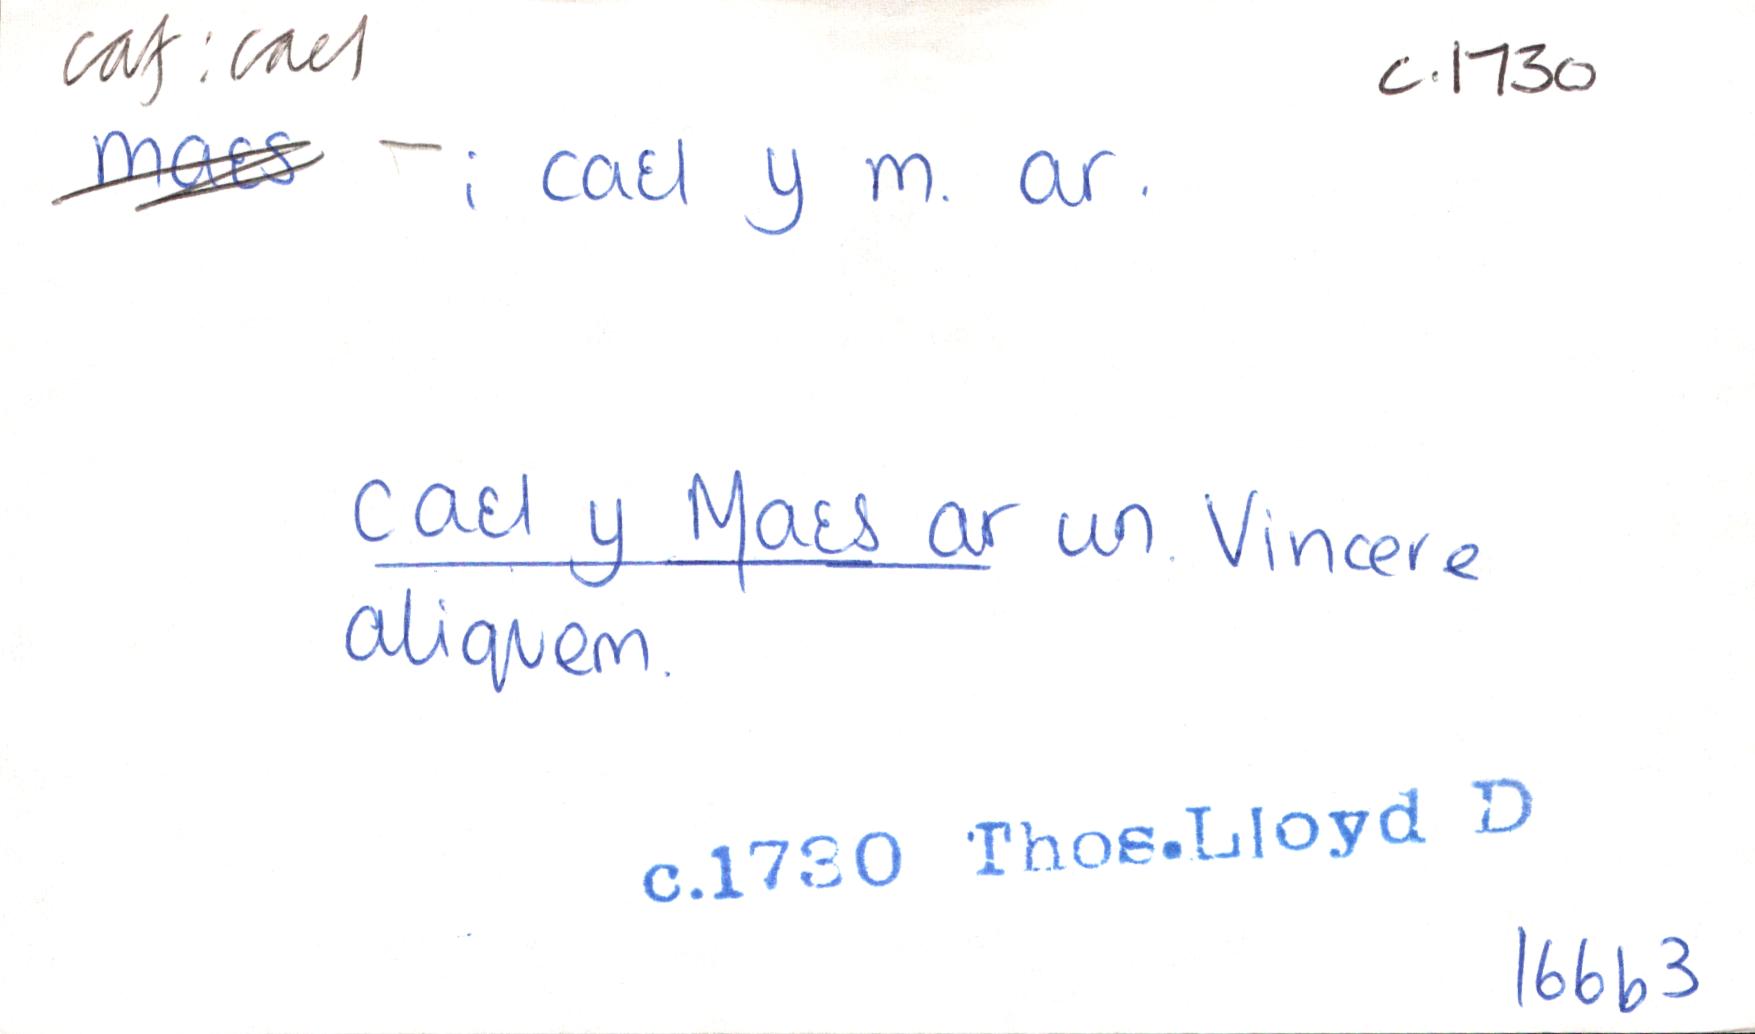 caf: cael
c.1730
maes – ; cael y m. ar.
cael y Maes ar un. Vincere
aliquem.
c.1730 Thos.Lloyd D
166b3